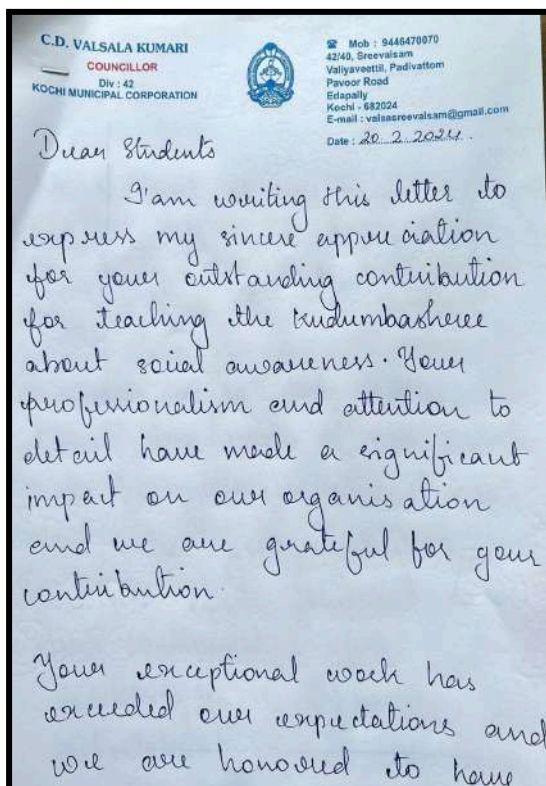 C.D. VALSALA KUMARI
COUNCILLOR
Div : 42
KOCHI MUNICIPAL CORPORATION
☎ Mob : 9446470070
42/40, Sreevalsam
Valiyaveettil, Padivattom
Pavoor Road
Edapally
Kochi - 682024
E-mail : valsasreevalsam@gmail.com
Date : 20.2.2024.
Dear Students
I'am writing this letter to
express my sincere appreciation
for your outstanding contribution
for teaching the kudumbasheree
about social awareness. Your
professionalism and attention to
detail have made a significant
impact on our organisation
and we are grateful for your
contribution.
Your exceptional work has
exceeded our expectations and
we are honored to have